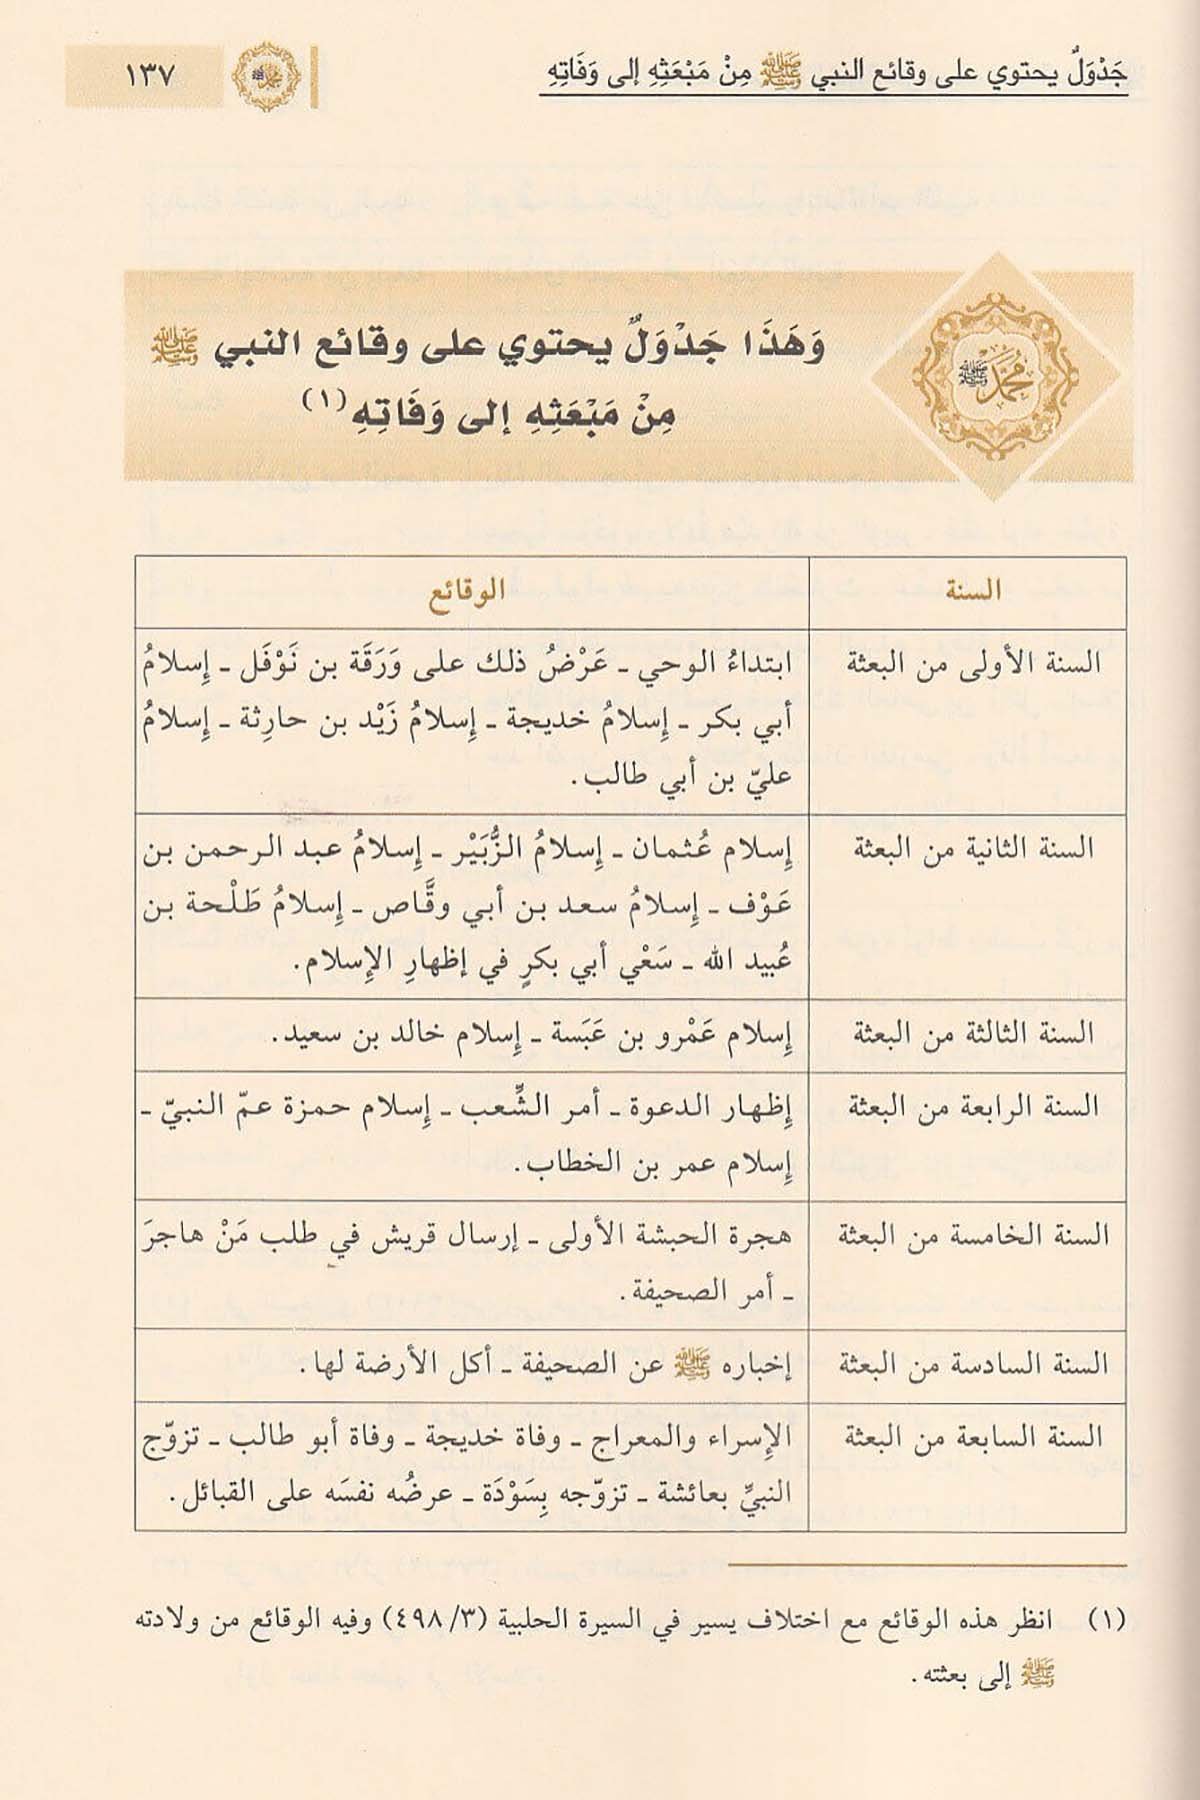 جَدْوَلٌ يحتوي على وقائع النبي ﷺ مِنْ مَبْعَثِهِ إلى وَفَاتِهِ
محمد ﷺ
١٣٧
وَهَذَا جَدْوَلٌ يحتوي على وقائع النبي ﷺ
مِنْ مَبْعَثِهِ إلى وَفَاتِهِ (١)
مُحَمَّد ﷺ
السنة
الوقائع
السنة الأولى من البعثة
ابتداءُ الوحي ـ عَرْضُ ذلك على وَرَقَة بن نَوْفَل ـ إِسلامُ
أبي بكر ـ إِسلامُ خديجة ـ إِسلامُ زَيْد بن حارِثة ـ إِسلامُ
عليّ بن أبي طالب.
السنة الثانية من البعثة
إِسلام عُثمان ـ إِسلامُ الزُّبَيْر ـ إِسلامُ عبد الرحمن بن
عَوْف ـ إِسلامُ سعد بن أبي وقَّاص ـ إِسلامُ طَلْحة بن
عُبيد الله ـ سَعْي أبي بكرٍ في إظهارِ الإِسلام.
السنة الثالثة من البعثة
إِسلام عَمْرو بن عَبَسة ـ إِسلام خالد بن سعيد.
السنة الرابعة من البعثة
إِظهار الدعوة ـ أمر الشِّعب ـ إِسلام حمزة عمّ النبيّ ـ
إِسلام عمر بن الخطاب.
السنة الخامسة من البعثة
هجرة الحبشة الأولى ـ إرسال قريش في طلب مَنْ هاجرَ
ـ أمر الصحيفة.
السنة السادسة من البعثة
إخباره ﷺ عن الصحيفة ـ أكل الأرضة لها.
السنة السابعة من البعثة
الإِسراء والمعراج ـ وفاة خديجة ـ وفاة أبو طالب ـ تزوّج
النبيِّ بعائشة ـ تزوّجه بِسَوْدَة ـ عرضُه نفسَه على القبائل.
(١) انظر هذه الوقائع مع اختلاف يسير في السيرة الحلبية (٣/ ٤٩٨) وفيه الوقائع من ولادته
ﷺ إلى بعثته.